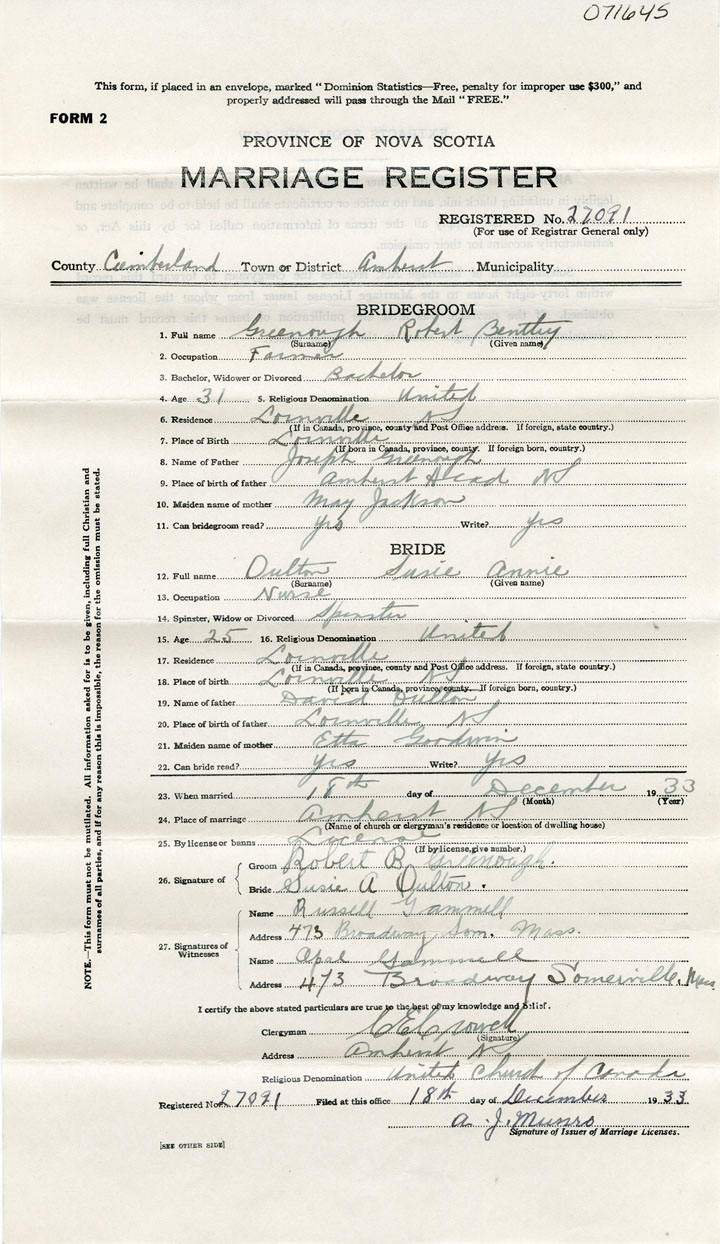 071645
This form, if placed in an envelope, marked "Dominion Statistics—Free, penalty for improper use $300," and
properly addressed will pass through the Mail "FREE."
FORM 2
PROVINCE OF NOVA SCOTIA
MARRIAGE REGISTER
REGISTERED No. 27091
(For use of Registrar General only)
County Cumberland Town or District Amherst Municipality
BRIDEGROOM
1. Full name Greenough Robert Bentley
(Surname) (Given name)
2. Occupation Farmer
3. Bachelor, Widower or Divorced Bachelor
4. Age 31 5. Religious Denomination United
6. Residence Lornville NS
(If in Canada, province, county and Post Office address. If foreign, state country.)
7. Place of Birth Lornville
(If born in Canada, province, county. If foreign born, country.)
8. Name of Father Joseph Greenough
9. Place of birth of father Amherst NS
10. Maiden name of mother May Jackson
11. Can bridegroom read? yes Write? yes
BRIDE
12. Full name Oulton Susie Annie
(Surname) (Given name)
13. Occupation Nurse
14. Spinster, Widow or Divorced Spinster
15. Age 25 16. Religious Denomination United
17. Residence Lornville
(If in Canada, province, county and Post Office address. If foreign, state country.)
18. Place of birth Lornville NS
(If born in Canada, province, county. If foreign born, country.)
19. Name of father David Oulton
20. Place of birth of father Lornville NS
21. Maiden name of mother Etta Goodwin
22. Can bride read? yes Write? yes
23. When married 18th day of December 1933
(Month) (Year)
24. Place of marriage Amherst NS
(Name of church or clergyman's residence or location of dwelling house)
25. By license or banns License
(If by license, give number.)
26. Signature of
Groom Robert B. Greenough.
Bride Susie A Oulton.
27. Signatures of Witnesses
Name Russell Gammell
Address 473 Broadway, Som. Mass.
Name Opal Gammell
Address 473 Broadway Somerville, Mass
I certify the above stated particulars are true to the best of my knowledge and belief.
Clergyman C E Crowell
(Signature)
Address Amherst NS
Religious Denomination United Church of Canada
Registered No. 27091 Filed at this office 18th day of December 1933
A. J. Munro
Signature of Issuer of Marriage Licenses.
[SEE OTHER SIDE]
NOTE.—This form must not be mutilated. All information asked for is to be given, including full Christian and
surnames of all parties, and if for any reason this is impossible, the reason for the omission must be stated.